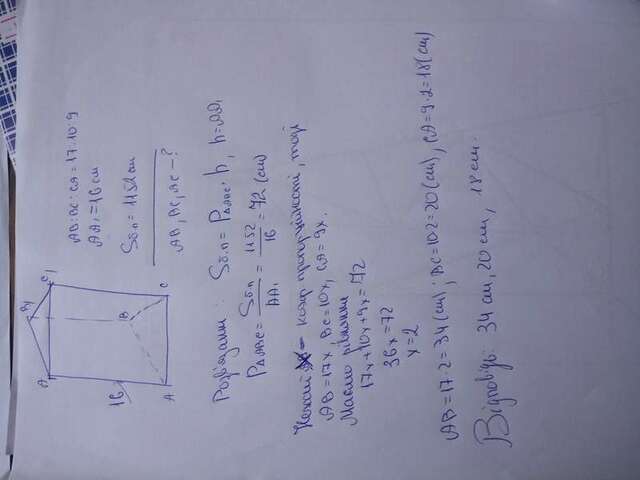 B1
A1 C1
AB:BC:CA=17:10:9
AA1=16см
16
B
Sб.п=1152см
A C
AB, BC, AC-?
Розв'язання: Sб.п=P△ABC·h, h=AA1
P△ABC=Sб.п/AA1=1152/16=72(см)
Нехай x- коеф пропорційності, тоді
AB=17x, BC=10x, CA=9x.
Маємо рівняння
17x+10x+9x=72
36x=72
x=2
AB=17·2=34(см); BC=10·2=20(см), CA=9·2=18(см)
Відповідь: 34 см, 20 см, 18 см.